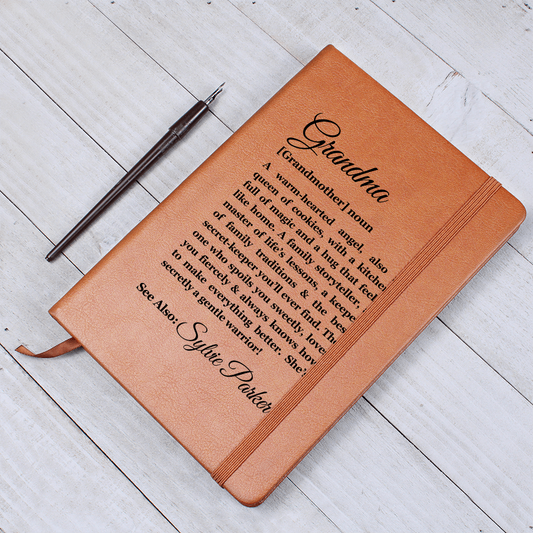 Grandma
[Grandmother] noun
A warm-hearted angel, also
queen of cookies, with a kitchen
full of magic and a hug that feel
like home. A family storyteller,
master of life's lessons, a keepe
of family traditions & the bes
secret-keeper you'll ever find. The
one who spoils you sweetly, love
you fiercely & always knows how
to make everything better. She'
secretly a gentle warrior!
See Also: Sylvie Parker